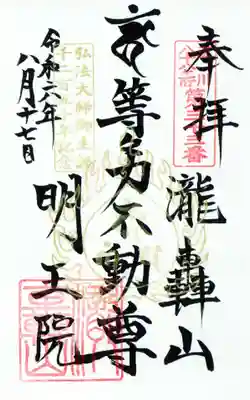 奉拝
第三十三番
瀧轟山
等々力不動尊
弘法大師御生誕
千二百五十年記念
明王院
令和六年
八月十七日